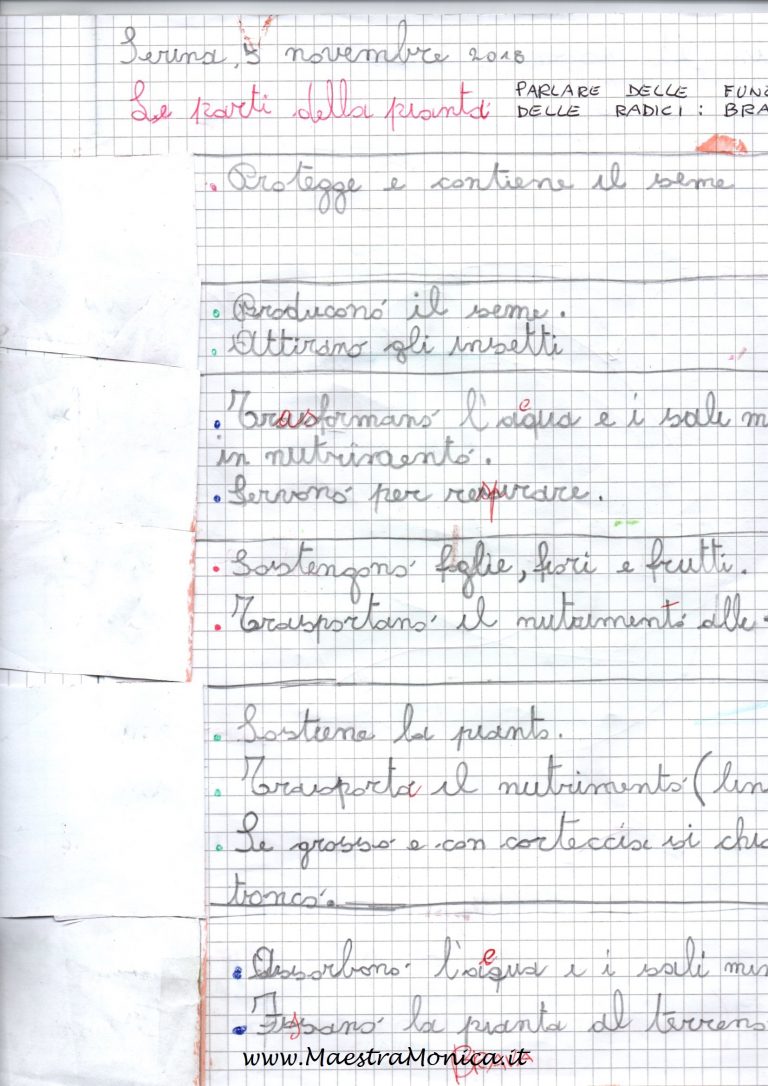 Serina, 5 novembre 2018
Le parti della pianta
PARLARE DELLE FUNZ
DELLE RADICI: BRA
• Protegge e contiene il seme
• Producono il seme.
• Attirano gli insetti
• Trasformano l'acqua e i sali m
in nutrimento.
• Servono per respirare.
• Sostengono foglie, fiori e frutti.
• Trasportano il nutrimento alle
• Sostiene la pianta.
• Trasporta il nutrimento (lin
• Se grosso e con corteccia si chia
tronco.
• Assorbono l'acqua e i sali min
• Fissano la pianta al terreno
www.MaestraMonica.it
BRAVA